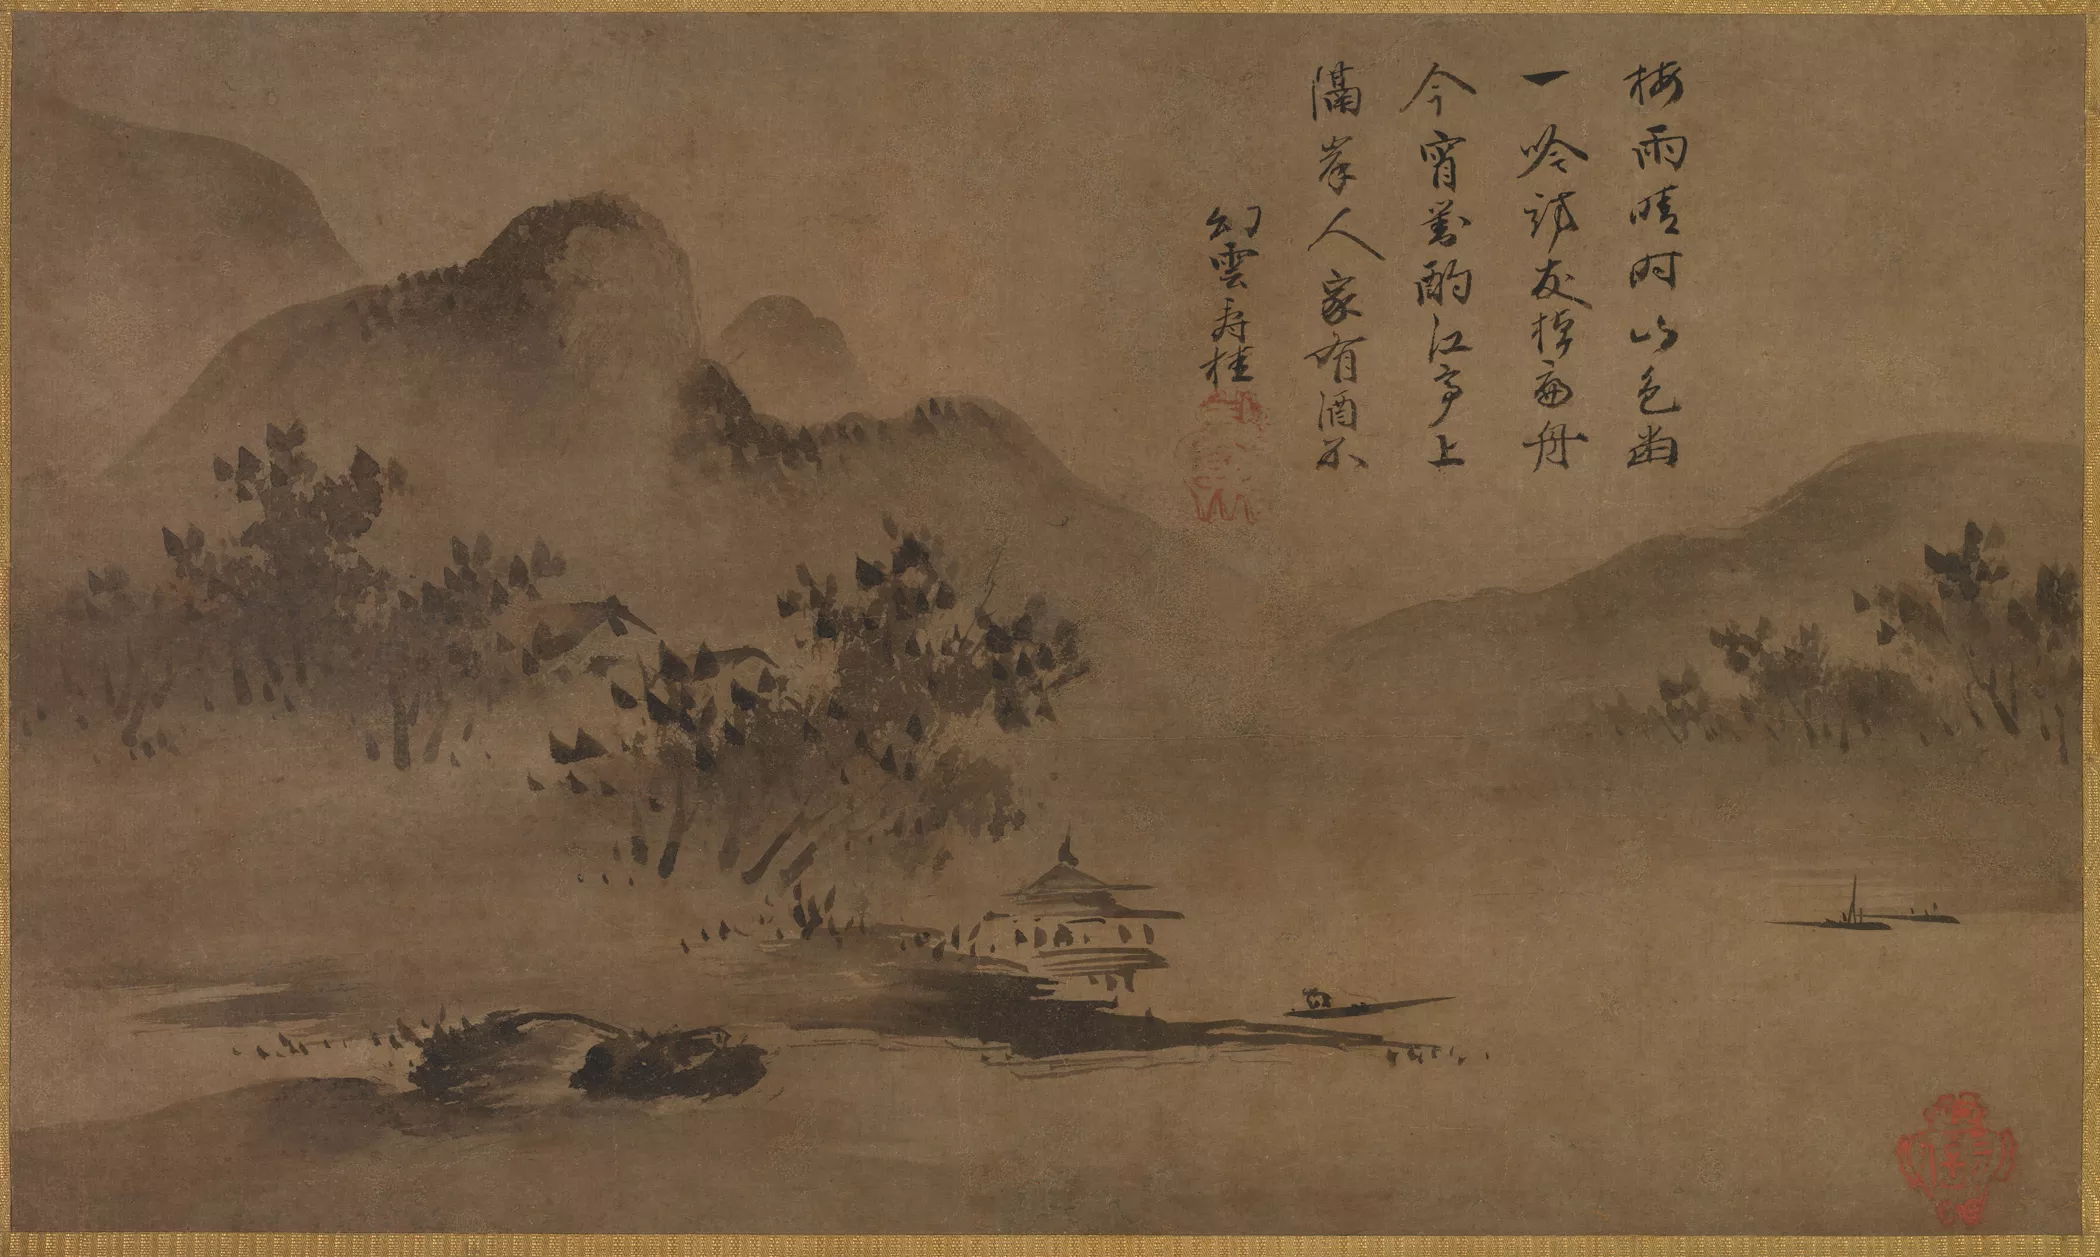 梅雨晴時山色幽
一吟訪友棹扁舟
今宵對酌江亭上
隔岸人家有酒不
幻雲壽桂